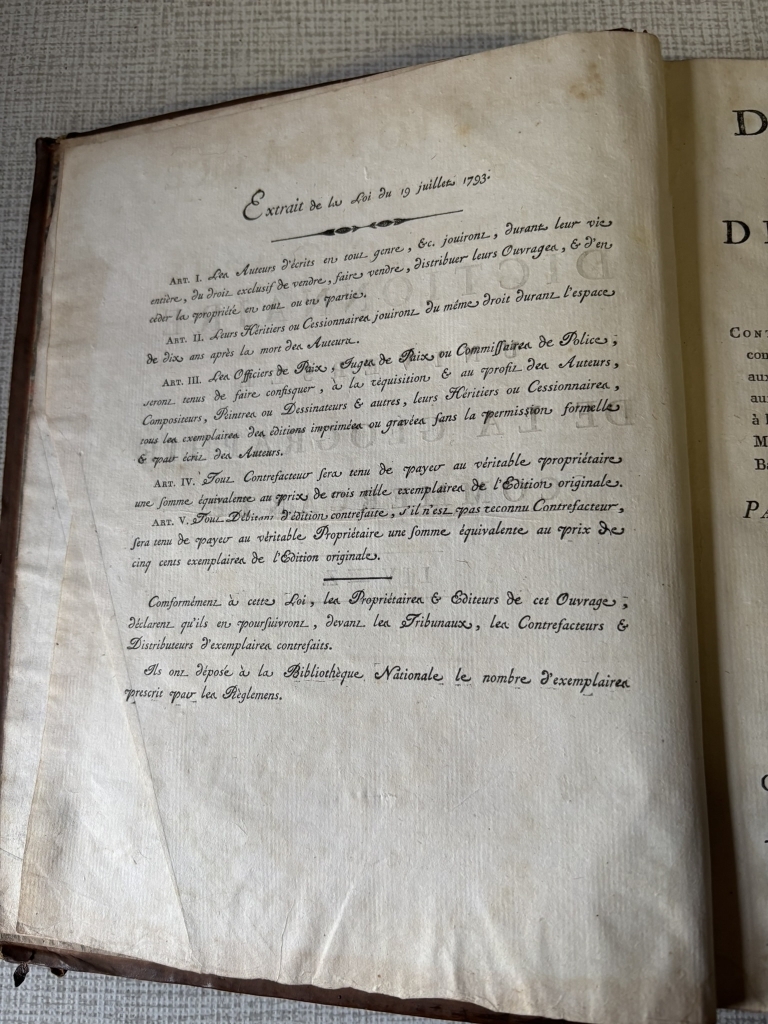 Extrait de la Loi du 19 juillet 1793.
ART. I. Les Auteurs d'écrits en tout genre, &c. jouiront, durant leur vie
entière, du droit exclusif de vendre, faire vendre, distribuer leurs Ouvrages, & d'en
céder la propriété en tout ou en partie.
ART. II. Leurs Héritiers ou Cessionnaires jouiront du même droit durant l'espace
de dix ans après la mort des Auteurs.
ART. III. Les Officiers de Paix, Juges de Paix ou Commissaires de Police,
seront tenus de faire confisquer, à la réquisition & au profit des Auteurs,
Compositeurs, Peintres ou Dessinateurs & autres, leurs Héritiers ou Cessionnaires,
tous les exemplaires des éditions imprimées ou gravées sans la permission formelle
& par écrit des Auteurs.
ART. IV. Tout Contrefacteur sera tenu de payer au véritable propriétaire
une somme équivalente au prix de trois mille exemplaires de l'Edition originale.
ART. V. Tout Débitant d'édition contrefaite, s'il n'est pas reconnu Contrefacteur,
sera tenu de payer au véritable Propriétaire une somme équivalente au prix de
cinq cents exemplaires de l'Edition originale.
Conformément à cette Loi, les Propriétaires & Editeurs de cet Ouvrage,
déclarent qu'ils en poursuivront, devant les Tribunaux, les Contrefacteurs &
Distributeurs d'exemplaires contrefaits.
Ils ont déposé à la Bibliothèque Nationale le nombre d'exemplaires
prescrit par les Règlemens.
D
DI
CONT
com
aux
au
à l
M
Ba
PA